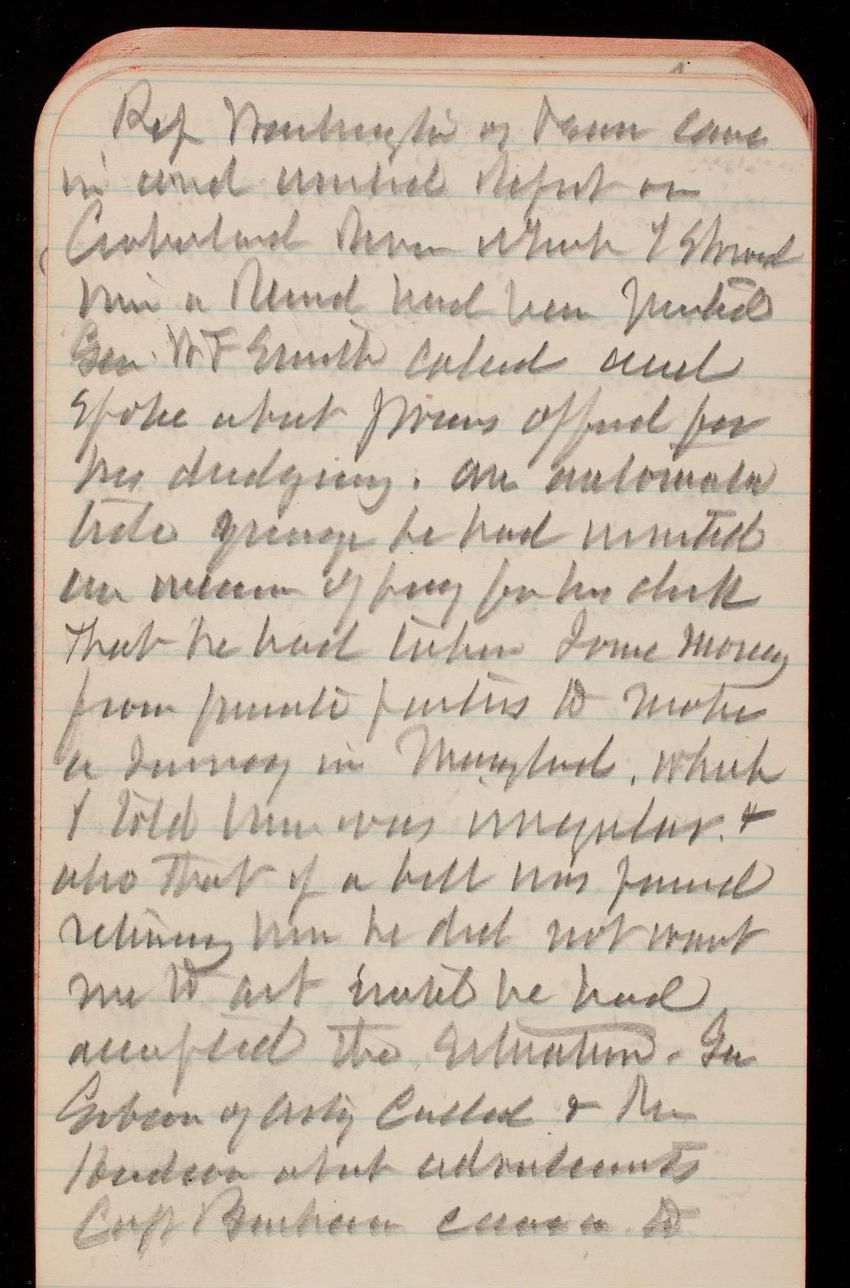 Rep Washington of Tenn came
in and wanted Report on
Cumberland River which I showed
him a Resend had been printed
Gen W F Smith called and
spoke about prices offered for
his dredging. an
he had wanted
an of pay for his clerk
that he had taken some money
from private parties to make
a survey in Maryland, which
I told him was irregular. &
also that if a bill was passed
retiring him he did not want
me to act until he had
accepted the situation. Gen
Gibson of arty called & Mr
Hudson about
Capt came to